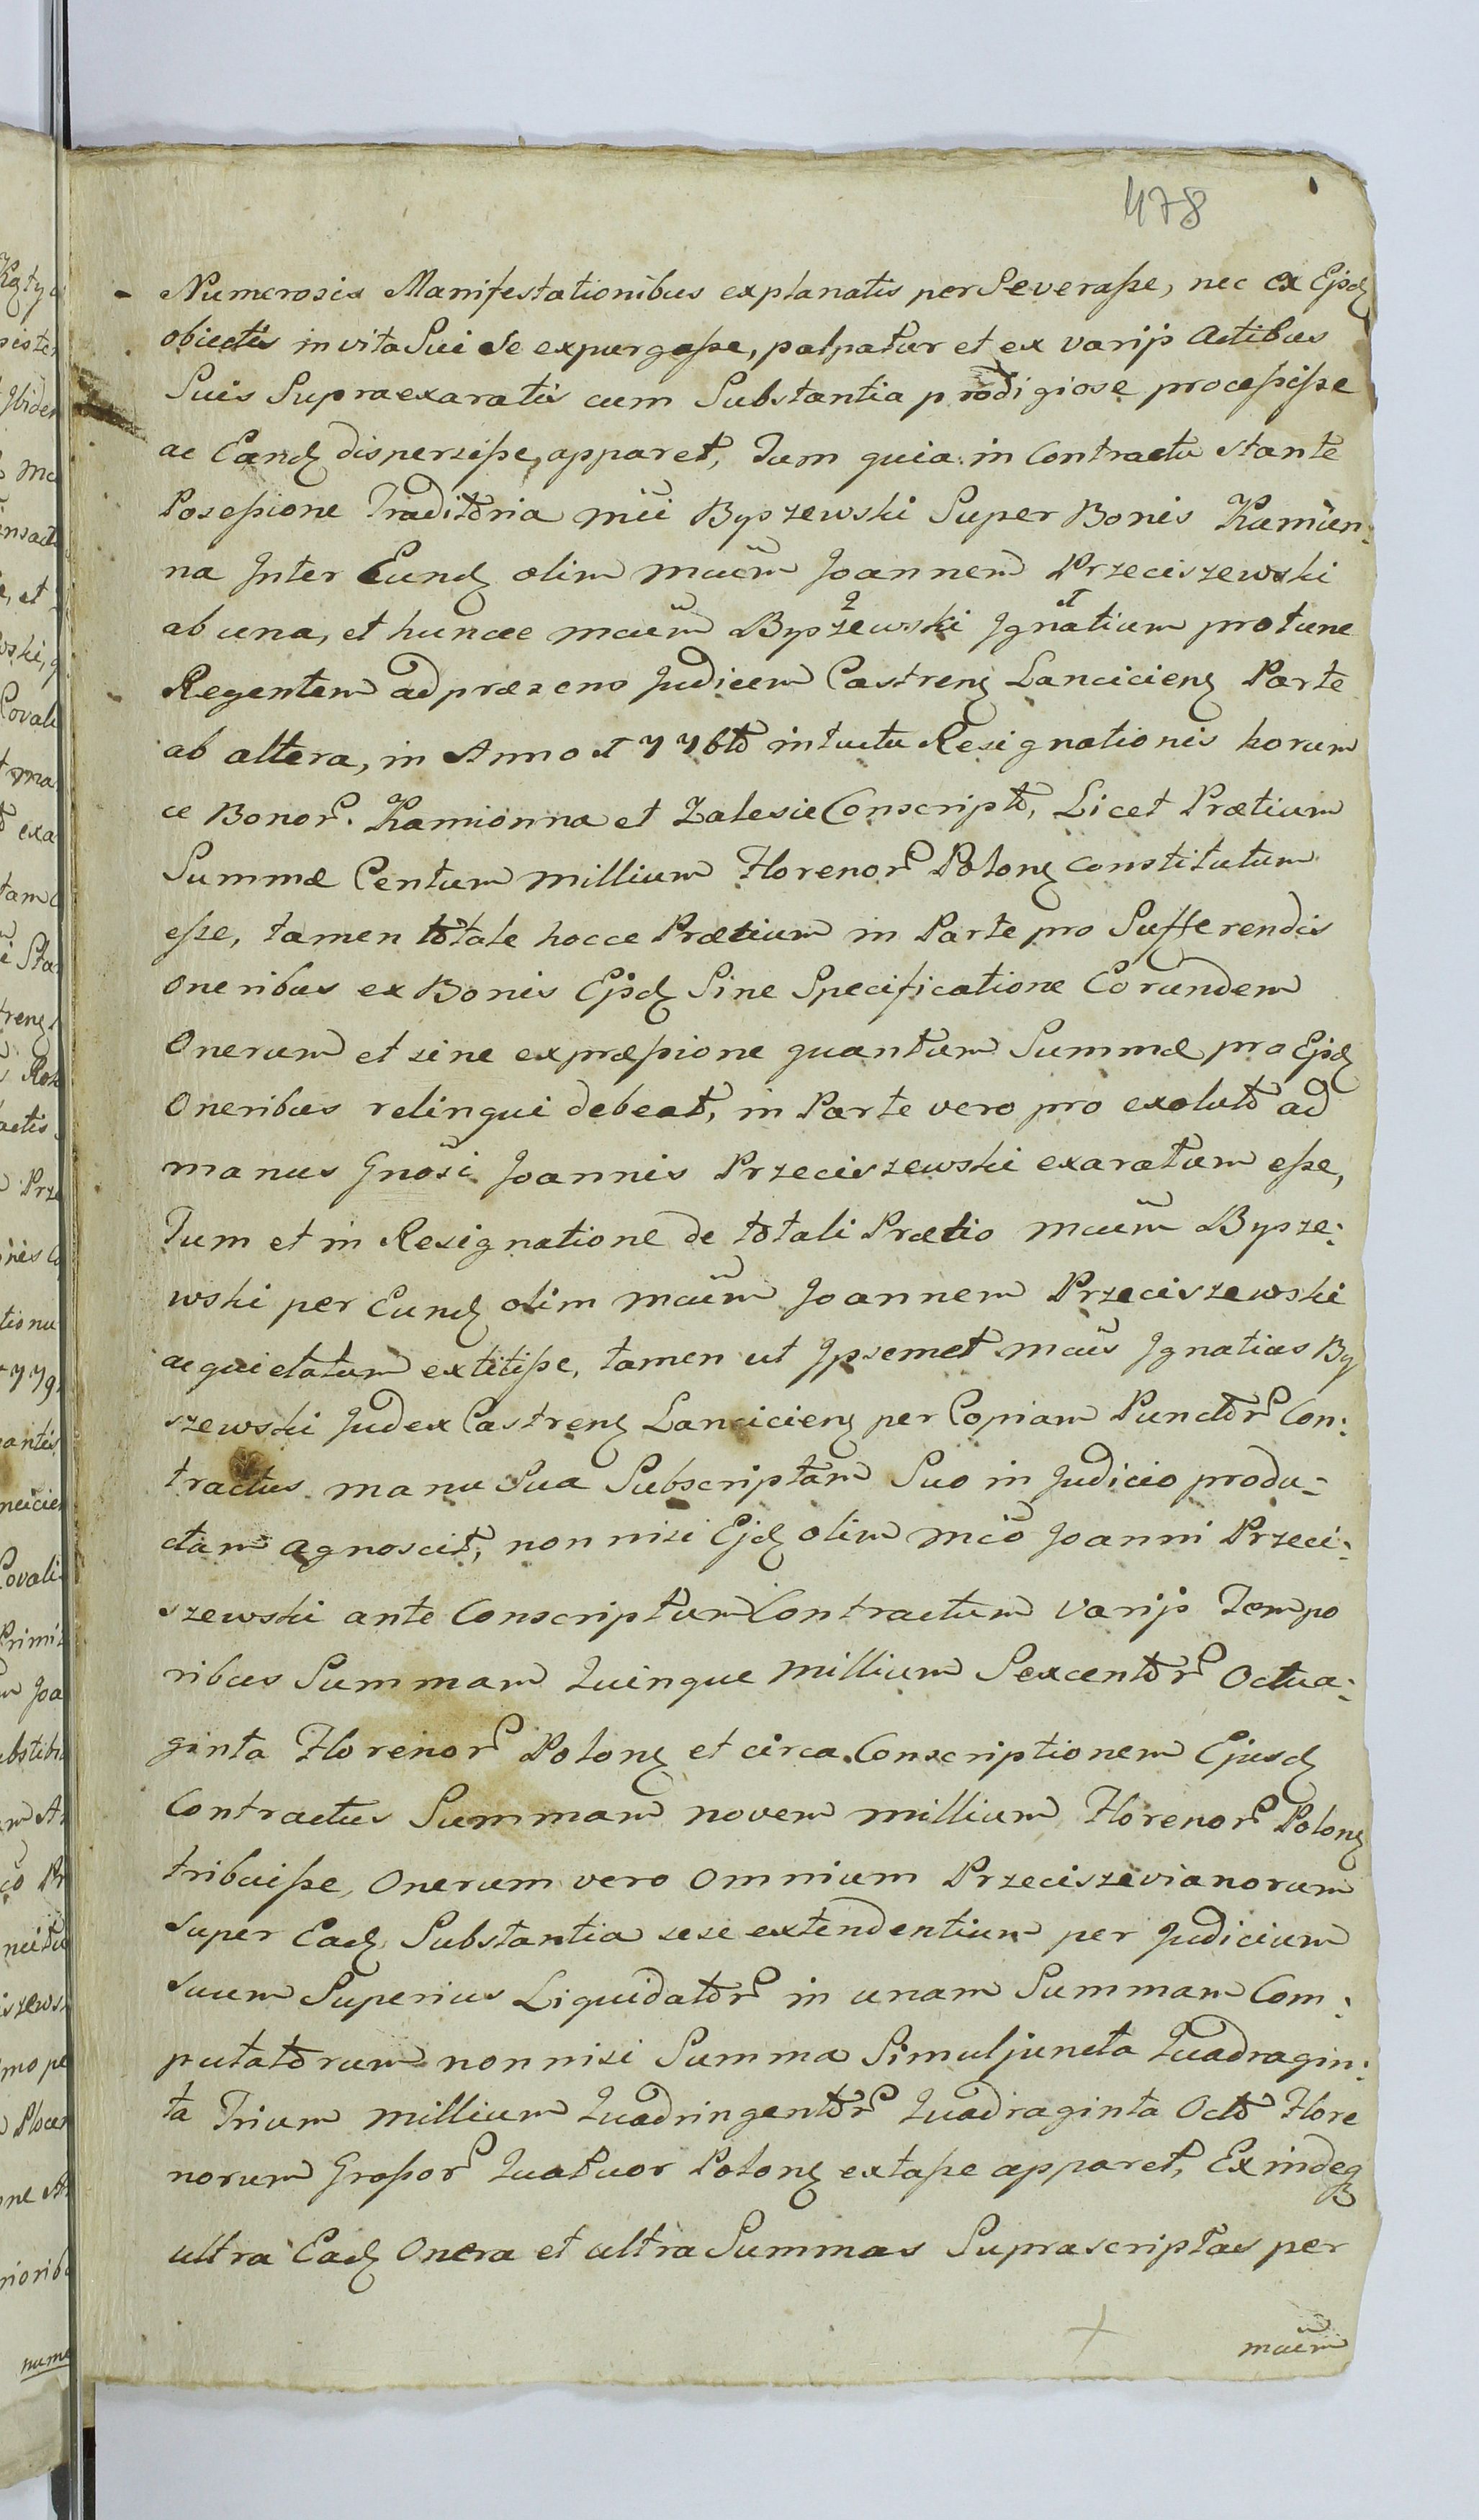 478
Numerosis Manifestationibus explanatis perSeveraße, nec ex Ejsd
obiectis in vita Sui Se expurgaße, palpatur et ex varijs Actibus
Suis Supraexaratis cum Substantia prodigiose proceßiße
ac Eand disperziße, apparet, Tum quia in Contractu stante
Poseßione Traditoria mci Byszewski Super Bonis Kamien:
na Inter Eund olim mcum Joannem Przeciszewski
ab una, et huncce mcum Byszewski Ignatium protunc
Regentem ad præzens Judicem Castren Lancicien Parte
ab altera, in Anno 1776to intuitu Resignationis horum
ce Bonor. Kamionna et Zalesie Conscripto, Licet Prætium
Summæ Centum millium Florenor Polon constitutum
eße, tamen totale hocce Prætium in Parte pro Sufferendis
Oneribus ex Bonis Ejsd Sine Specificatione Eorundem
Onerum et sine expræßione quantum Summæ pro Ejsd
Oneribus relinqui debeat, in Parte vero pro exoluto ad
manus Gnosi Joannis Przeciszewski exaratum eße,
Tum et in Resignatione de totali Prætio mcum Bysze:
wski per Eund olim mcum Joannem Przeciszewski
acquietatum extitiße, tamen ut Ipsemet mcus Ignatius By
szewski Judex Castren Lancicien per Copiam Punctor Con:
tractus manu Sua Subscriptam Suo in Judicio produ:
ctam agnoscit, non nisi Ejd olim mco Joanni Przeci:
szewski ante Conscriptum Contractum varijs Tempo
ribus Summam Quinque millium Sexcentor Octua:
ginta Florenor Polon et circa Conscriptionem Ejusd
Contractus Summam novem millium Florenor Polon
tribuiße, Onerum vero omnium Przeciszevianorum
super Ead Substantia sese extendentium per Judicium
suum Superius Liquidator in unam Summam Com:
putatorum non nisi Summa Simuljuncta Quadragin:
ta Trium millium Quadringentor Quadraginta Octo Flore
norum Großor Quatuor Polon extaße apparet, Exindeq
ultra Ead Onera et ultra Summas Suprascriptas per
mcum